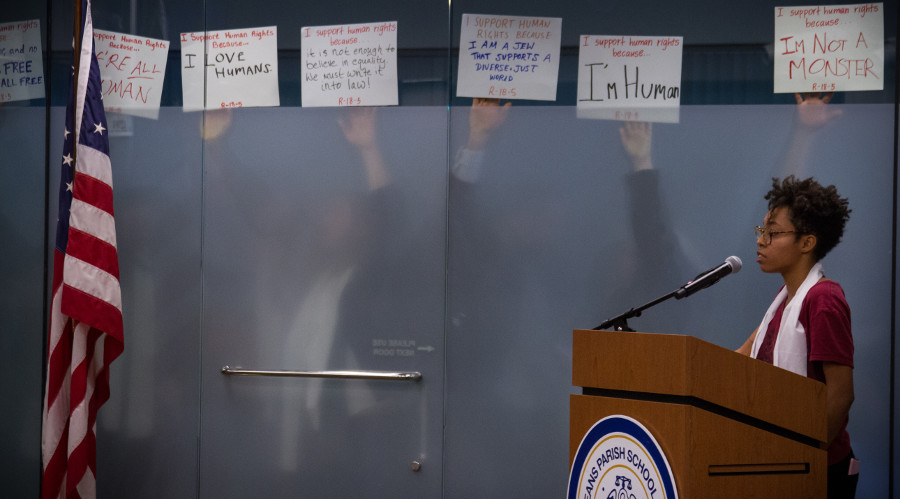 human rights
because
and no
FREE
ALL FREE
I support Human Rights
Because...
WE'RE ALL
HUMAN
R-18-5
I support Human Rights
Because...
I LOVE
HUMANS.
R-18-5
I support human rights
because...
it is not enough to
believe in equality
We must write it
into law!
R-18-5
I SUPPORT HUMAN
RIGHTS BECAUSE
I AM A JEW
THAT SUPPORTS A
DIVERSE, JUST
WORLD
R-18-5
I support human rights
because...
I'm Human
R-18-5
I support human rights
because...
I'm NOT A
MONSTER
R-18-5
PLEASE USE
NEXT DOOR
EANS PARISH SCHOOL